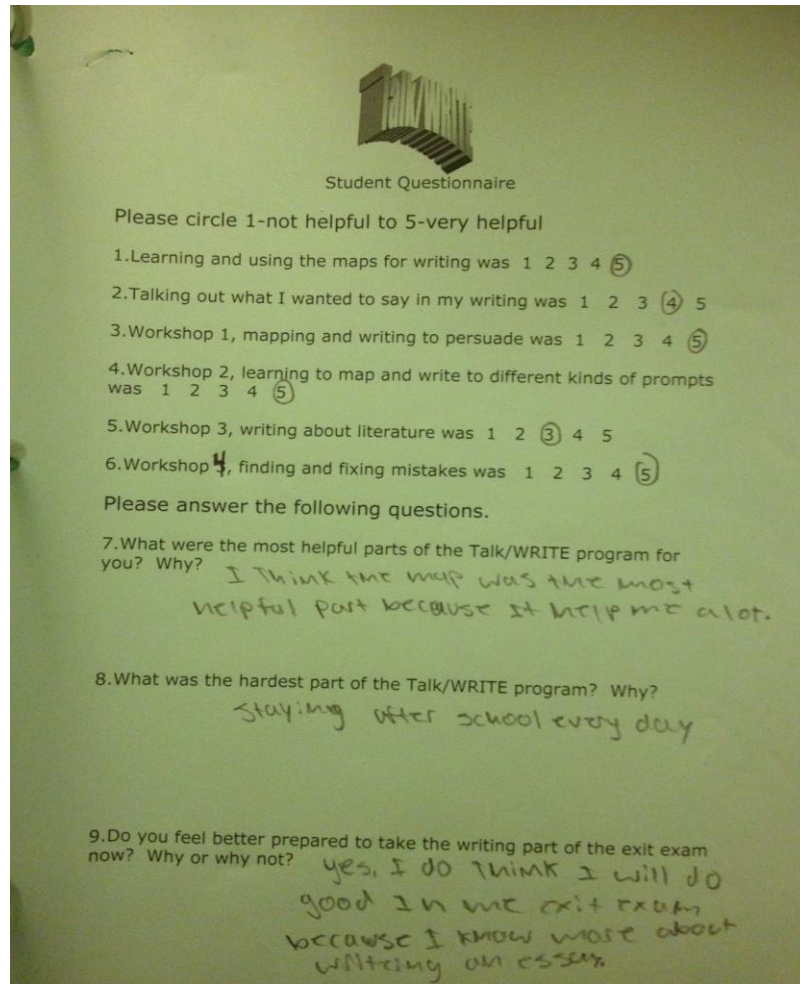 Talk/WRITE
Student Questionnaire
Please circle 1-not helpful to 5-very helpful
1.Learning and using the maps for writing was 1 2 3 4 5
2.Talking out what I wanted to say in my writing was 1 2 3 4 5
3.Workshop 1, mapping and writing to persuade was 1 2 3 4 5
4.Workshop 2, learning to map and write to different kinds of prompts
was 1 2 3 4 5
5.Workshop 3, writing about literature was 1 2 3 4 5
6.Workshop 4, finding and fixing mistakes was 1 2 3 4 5
Please answer the following questions.
7.What were the most helpful parts of the Talk/WRITE program for
you? Why? I Think the map was the most
helpful part because It help me alot.
8.What was the hardest part of the Talk/WRITE program? Why?
Staying after school every day
9.Do you feel better prepared to take the writing part of the exit exam
now? Why or why not? yes, I do Think I will do
good In me exit exam
because I know more about
writeing an essay.